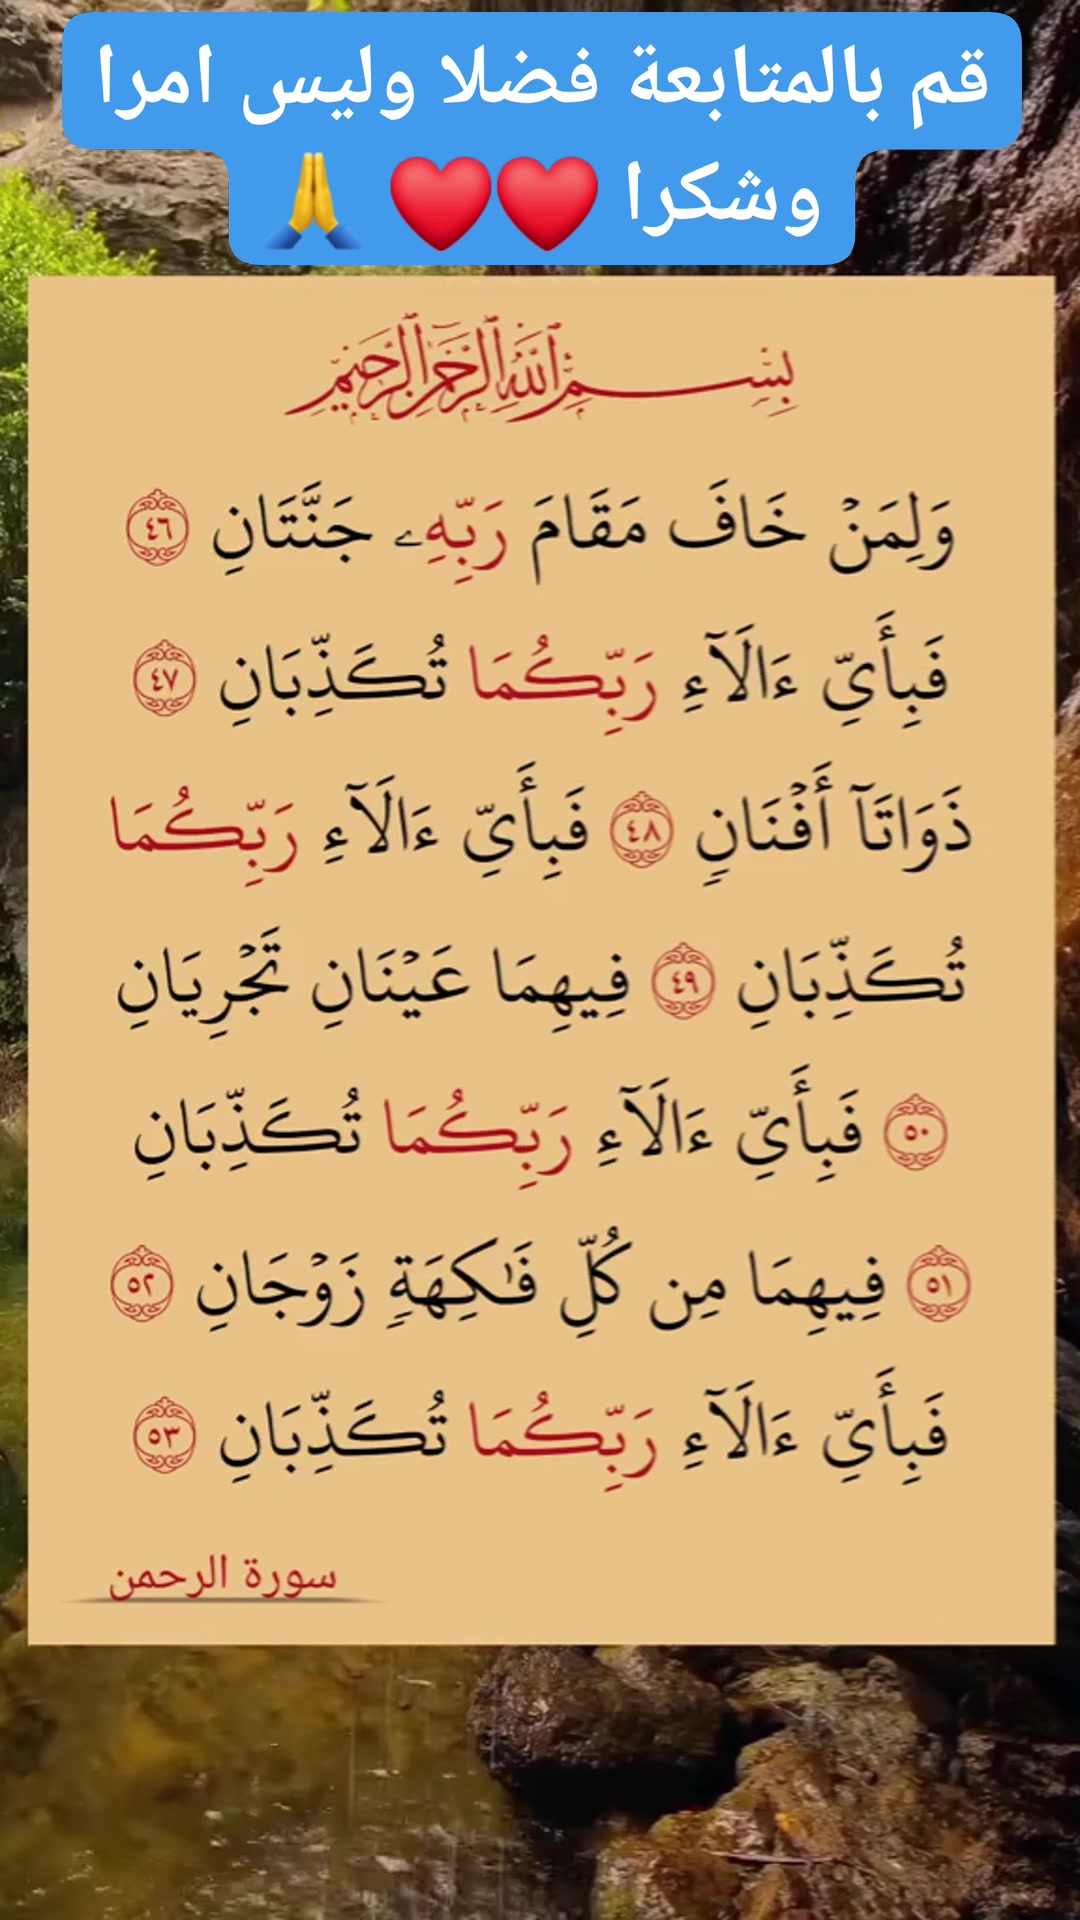 قم بالمتابعة فضلا وليس امرا
وشكرا ❤️❤️ 🙏
بِسْمِ ٱللَّهِ ٱلرَّحْمَٰنِ ٱلرَّحِيمِ
وَلِمَنْ خَافَ مَقَامَ رَبِّهِۦ جَنَّتَانِ ٤٦
فَبِأَيِّ ءَالَآءِ رَبِّكُمَا تُكَذِّبَانِ ٤٧
ذَوَاتَآ أَفْنَانٍ ٤٨ فَبِأَيِّ ءَالَآءِ رَبِّكُمَا
تُكَذِّبَانِ ٤٩ فِيهِمَا عَيْنَانِ تَجْرِيَانِ
٥٠ فَبِأَيِّ ءَالَآءِ رَبِّكُمَا تُكَذِّبَانِ
٥١ فِيهِمَا مِن كُلِّ فَٰكِهَةٍ زَوْجَانِ ٥٢
فَبِأَيِّ ءَالَآءِ رَبِّكُمَا تُكَذِّبَانِ ٥٣
سورة الرحمن